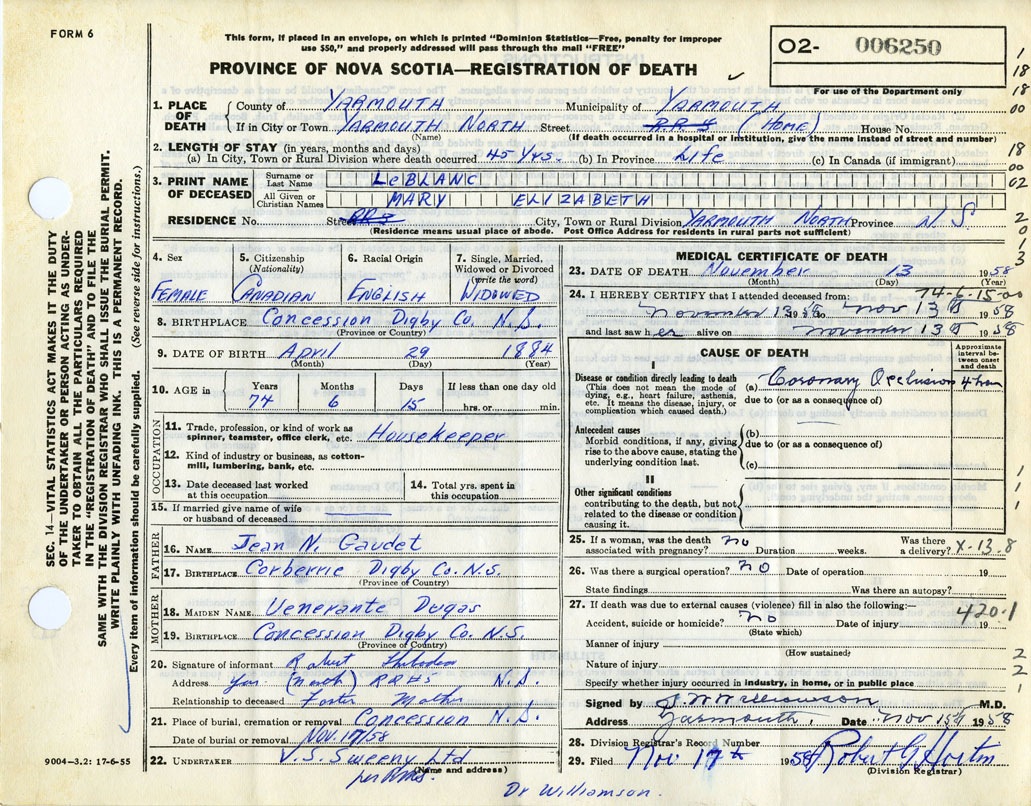 FORM 6
This form, if placed in an envelope, on which is printed "Dominion Statistics—Free, penalty for improper
use $50," and properly addressed will pass through the mail "FREE"
PROVINCE OF NOVA SCOTIA—REGISTRATION OF DEATH
O2- 006250
For use of the Department only
1. PLACE OF DEATH County of YARMOUTH Municipality of YARMOUTH
If in City or Town YARMOUTH NORTH Street R.R. (HOME) House No.
(Name) (If death occurred in a hospital or institution, give the name instead of street and number)
2. LENGTH OF STAY (in years, months and days)
(a) In City, Town or Rural Division where death occurred 45 Yrs. (b) In Province Life (c) In Canada (if immigrant)
3. PRINT NAME OF DECEASED
Surname or Last Name LeBLANC
All Given or Christian Names MARY ELIZABETH
RESIDENCE No. Street City, Town or Rural Division YARMOUTH NORTH Province N.S.
(Residence means usual place of abode. Post Office Address for residents in rural parts not sufficient)
4. Sex FEMALE
5. Citizenship (Nationality) CANADIAN
6. Racial Origin ENGLISH
7. Single, Married, Widowed or Divorced (write the word) WIDOWED
8. BIRTHPLACE Concession Digby Co. N.S.
(Province or Country)
9. DATE OF BIRTH April 29 1884
(Month) (Day) (Year)
10. AGE in Years 74 Months 6 Days 15 If less than one day old hrs. or min.
OCCUPATION
11. Trade, profession, or kind of work as spinner, teamster, office clerk, etc. Housekeeper
12. Kind of industry or business, as cotton-mill, lumbering, bank, etc.
13. Date deceased last worked at this occupation
14. Total yrs. spent in this occupation
15. If married give name of wife or husband of deceased
FATHER
16. NAME Jean N. Gaudet
17. BIRTHPLACE Corberrie Digby Co. N.S.
(Province of Country)
MOTHER
18. MAIDEN NAME Venerante Dugas
19. BIRTHPLACE Concession Digby Co. N.S.
(Province of Country)
20. Signature of informant Robert
Address Yar (North) N.S.
Relationship to deceased Foster Mother
21. Place of burial, cremation or removal Concession N.S.
Date of burial or removal Nov. 17/58
22. UNDERTAKER V.S. Sweeny Ltd
(Name and address)
per
9004—3.2: 17-6-55
Dr Williamson.
MEDICAL CERTIFICATE OF DEATH
23. DATE OF DEATH November 13 1958
(Month) (Day) (Year)
74-6-15-00
24. I HEREBY CERTIFY that I attended deceased from:
November 13 1958 to Nov 13 1958
and last saw her alive on November 13 1958
CAUSE OF DEATH
Approximate interval between onset and death
I
Disease or condition directly leading to death
(This does not mean the mode of dying, e.g., heart failure, asthenia, etc. It means the disease, injury, or complication which caused death.)
(a) Coronary Occlusion 4 hrs
due to (or as a consequence of)
Antecedent causes
Morbid conditions, if any, giving rise to the above cause, stating the underlying condition last.
(b)
due to (or as a consequence of)
(c)
II
Other significant conditions
contributing to the death, but not related to the disease or condition causing it.
25. If a woman, was the death associated with pregnancy? no Duration weeks. Was there a delivery? X-13.8
26. Was there a surgical operation? no Date of operation 19
State findings Was there an autopsy?
27. If death was due to external causes (violence) fill in also the following:— 420.1
Accident, suicide or homicide? no Date of injury 19
(State which)
Manner of injury
(How sustained)
Nature of injury
Specify whether injury occurred in industry, in home, or in public place
Signed by Williamson M.D.
Address Yarmouth. Date Nov 15th 1958
28. Division Registrar's Record Number
29. Filed Nov 17th 1958 Robert G Horton
(Division Registrar)
SEC. 14—VITAL STATISTICS ACT MAKES IT THE DUTY
OF THE UNDERTAKER OR PERSON ACTING AS UNDER-
TAKER TO OBTAIN ALL THE PARTICULARS REQUIRED
IN THE "REGISTRATION OF DEATH" AND TO FILE THE
SAME WITH THE DIVISION REGISTRAR WHO SHALL ISSUE THE BURIAL PERMIT.
WRITE PLAINLY WITH UNFADING INK. THIS IS A PERMANENT RECORD.
Every item of information should be carefully supplied. (See reverse side for instructions.)
1
18
18
00
18
00
02
2
0
1
3
1
1
1
2
2
1